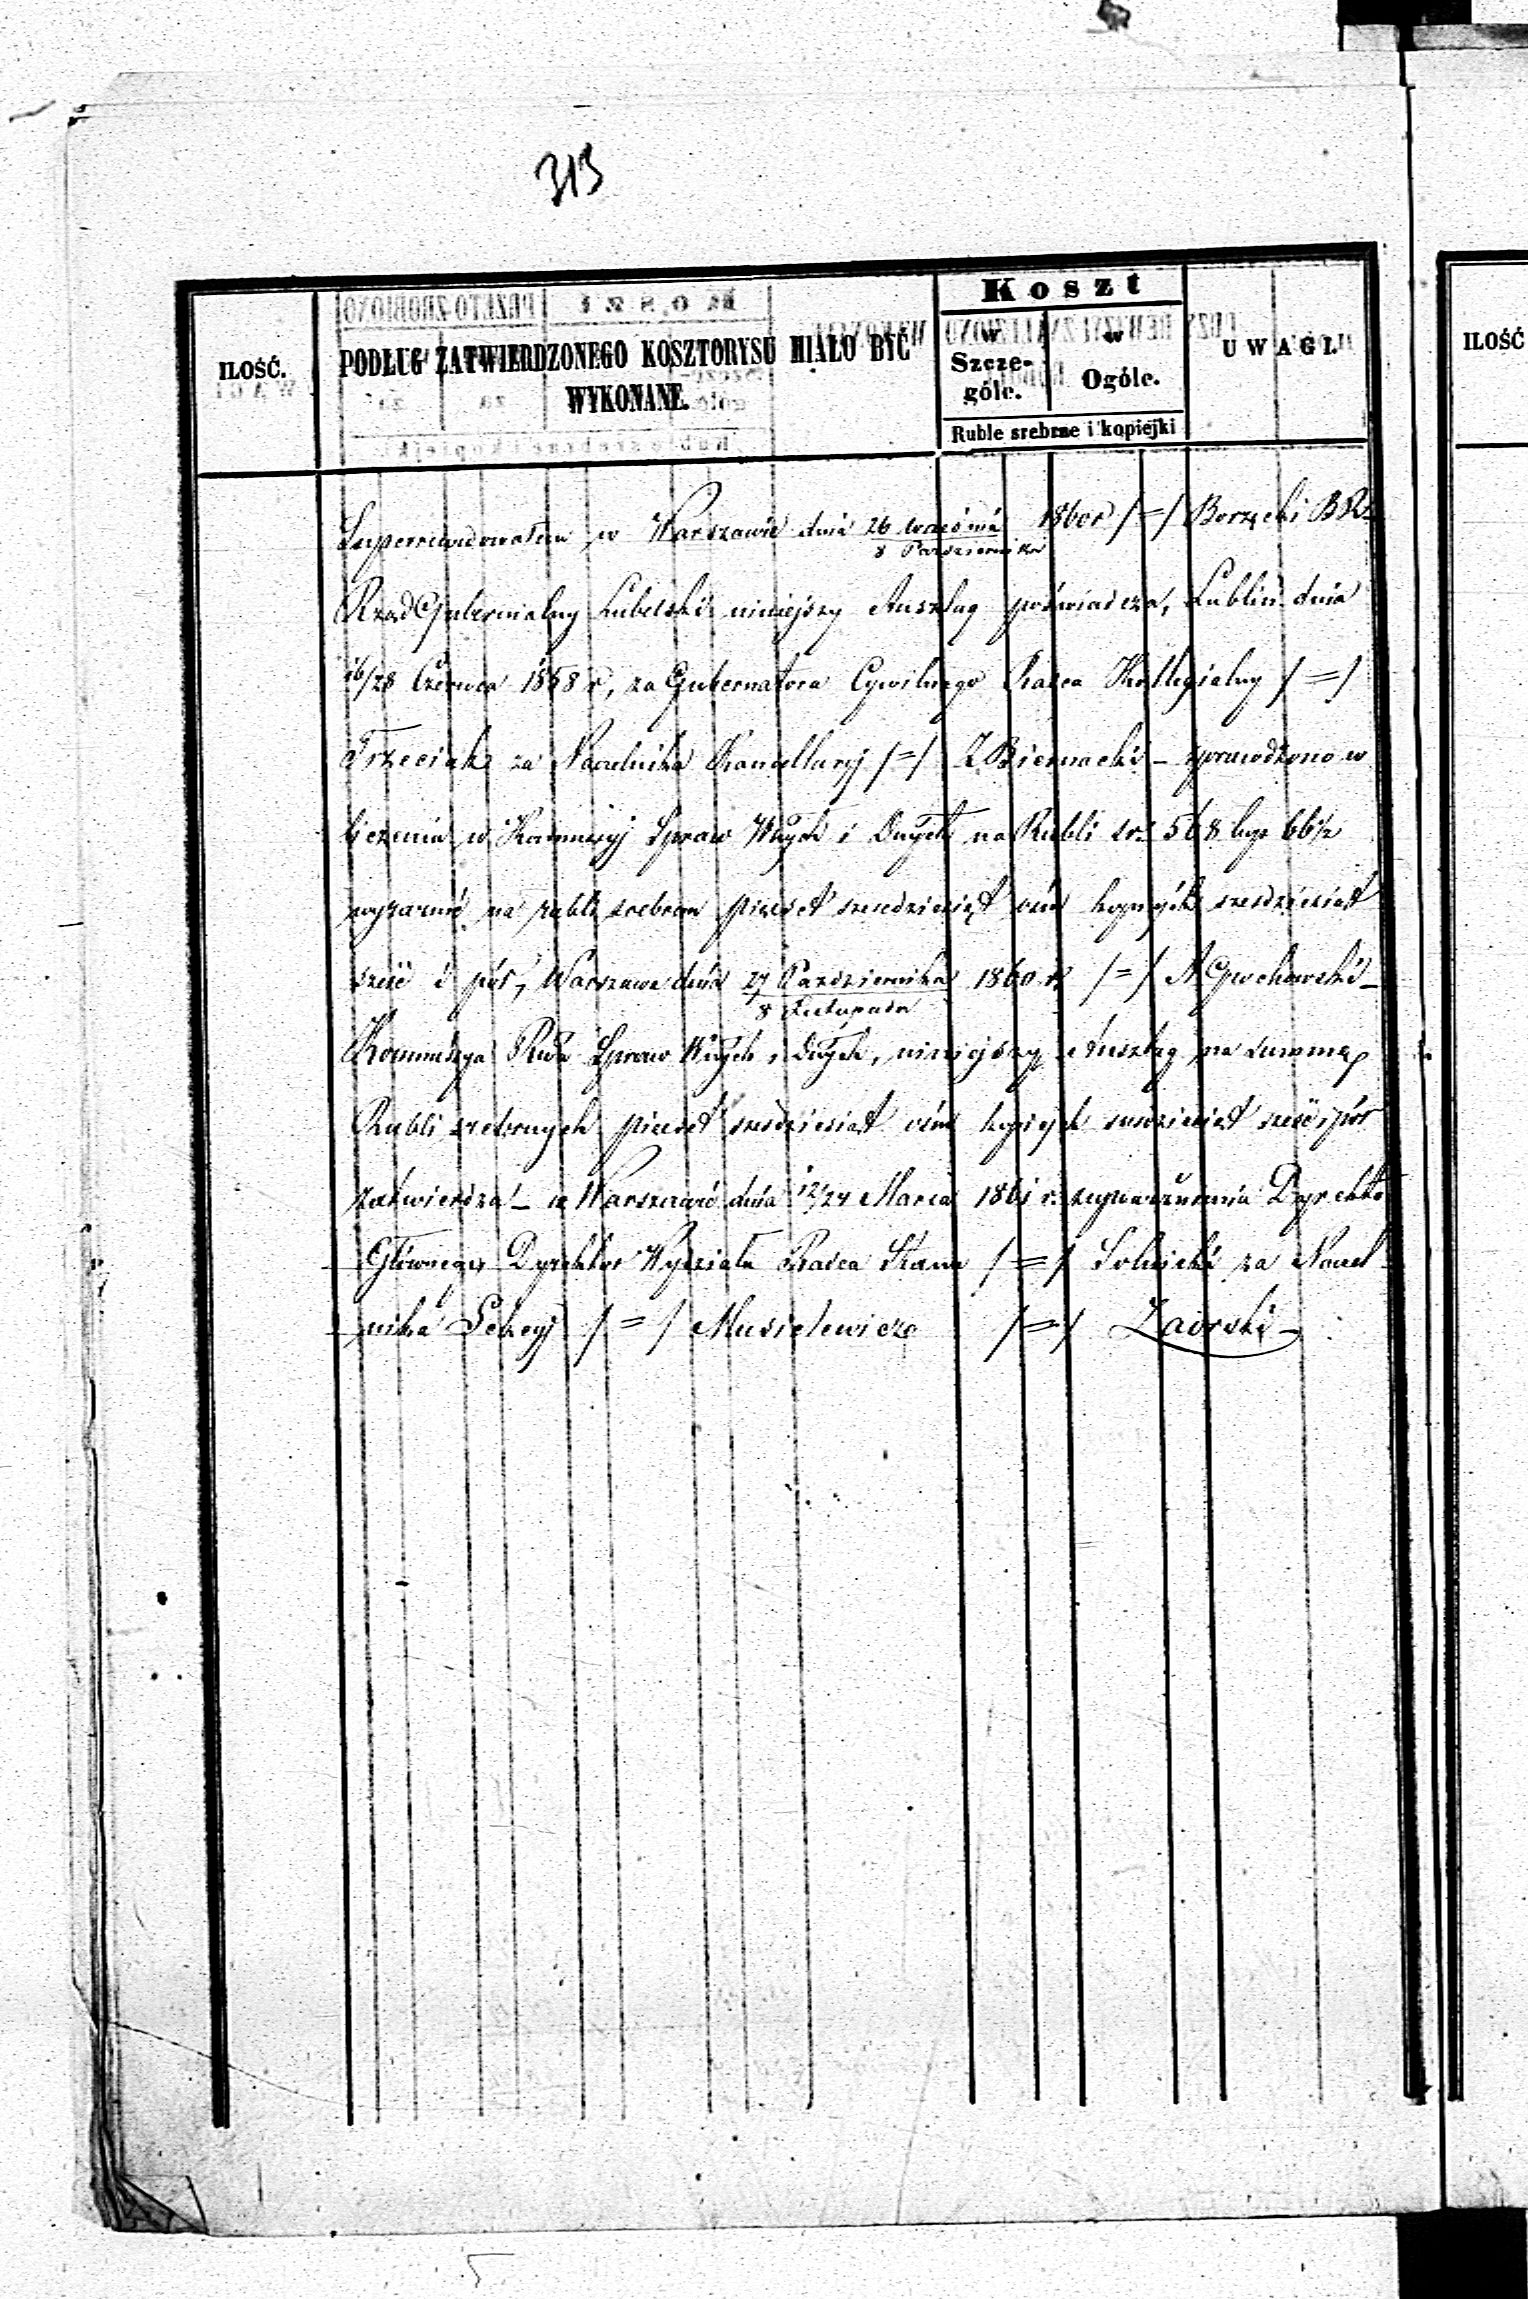 313
ILOŚĆ.
PODŁUG ZATWIERDZONEGO KOSZTORYSU MIAŁO BYĆ
WYKONANE.
Koszt
w
Szcze-
góle.
w
Ogóle.
Ruble srebrne i kopiejki
UWAGI.
ILOŚĆ
Superrewidowałem w Warszawie dnia 26 września / 8 Października 1860 r /=/ Borzęcki B
Rząd Gubernialny Lubelski niniejszy Anszlag poświadcza, Lublin dnia
16/28 Czerwca 1858 r, za Gubernatora Cywilnego Radca Kollegialny /=/
Trzeciak za Naczelnika Kancellaryj /=/ Z Biernacki – sprawdzono w
liczeniu w Kommisyj Spraw Wnych i Dnych na Rubli sr. 568 kop 66½
wyraźnie na rubli srebrem pięćset sześdziesiąt ośm kopiejek sześdziesiąt
sześć i pół, Warszawa dnia 27 Października / 8 Listopada 1860 r. /=/ A
Kommisya Rwa Spraw Wnych i Dnych, niniejszy Anszlag na summę
Rubli srebrnych pięćset sześdziesiąt ośm kopiejek sześdziesiąt sześć i pół
zatwierdza – w Warszawie dnia 12/24 Marca 1861 r. z upoważnienia Dyrekto
Głównego Dyrektor Wydziału Radca Stanu /=/ Solnicki za Naczel
nika Sekcyj /=/ Musielewicz /=/ Zaorski